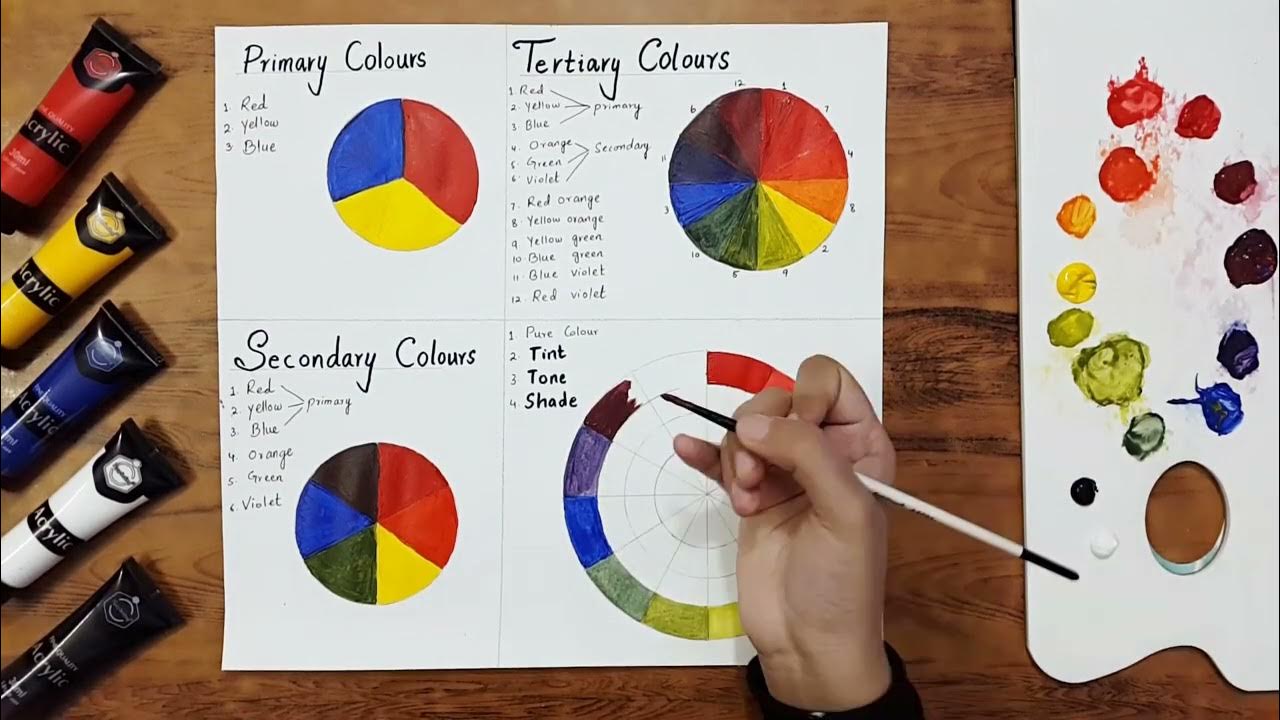 Primary Colours
1. Red
2. Yellow
3 Blue
Tertiary Colours
1. Red
2. Yellow
3. Blue
primary
4. Orange
5. Green
6. Violet
Secondary
7. Red orange
8. Yellow orange
9 Yellow green
10 Blue green
11. Blue violet
12. Red violet
12
1
7
4
8
2
9
5
10
3
11
6
Secondary Colours
1. Red
2. Yellow
3. Blue
primary
4. Orange
5. Green
6. Violet
1 Pure Colour
2. Tint
3 Tone
4 Shade
FINE QUALITY
Acrylic
30ml
Acrylic
Acrylic
Acrylic
FINE QUALITY
Acrylic